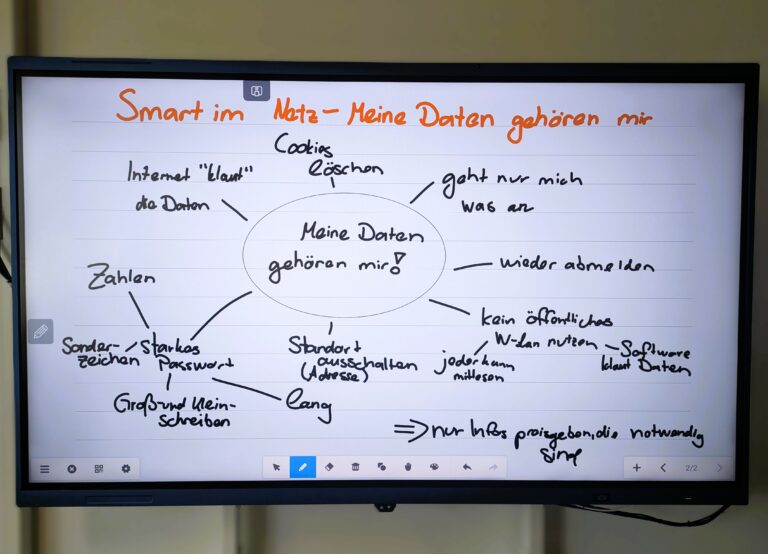 Smart im Netz - Meine Daten gehören mir
Cookies
löschen
Internet "klaut"
die Daten
geht nur mich
was an
Meine Daten
gehören mir!
wieder abmelden
Zahlen
kein öffentliches
W-lan nutzen
jeder kann
mitlesen
Software
klaut Daten
Sonder-
zeichen
Starkes
Passwort
Standort
ausschalten
(Adresse)
Groß-und Klein-
schreiben
lang
=> nur Infos preisgeben, die notwendig
sind
2/2